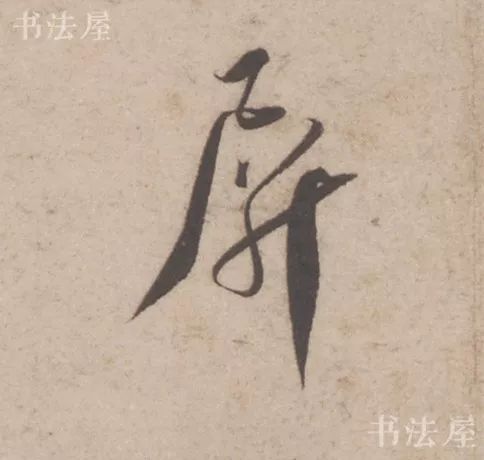 书法屋
屏
书法屋